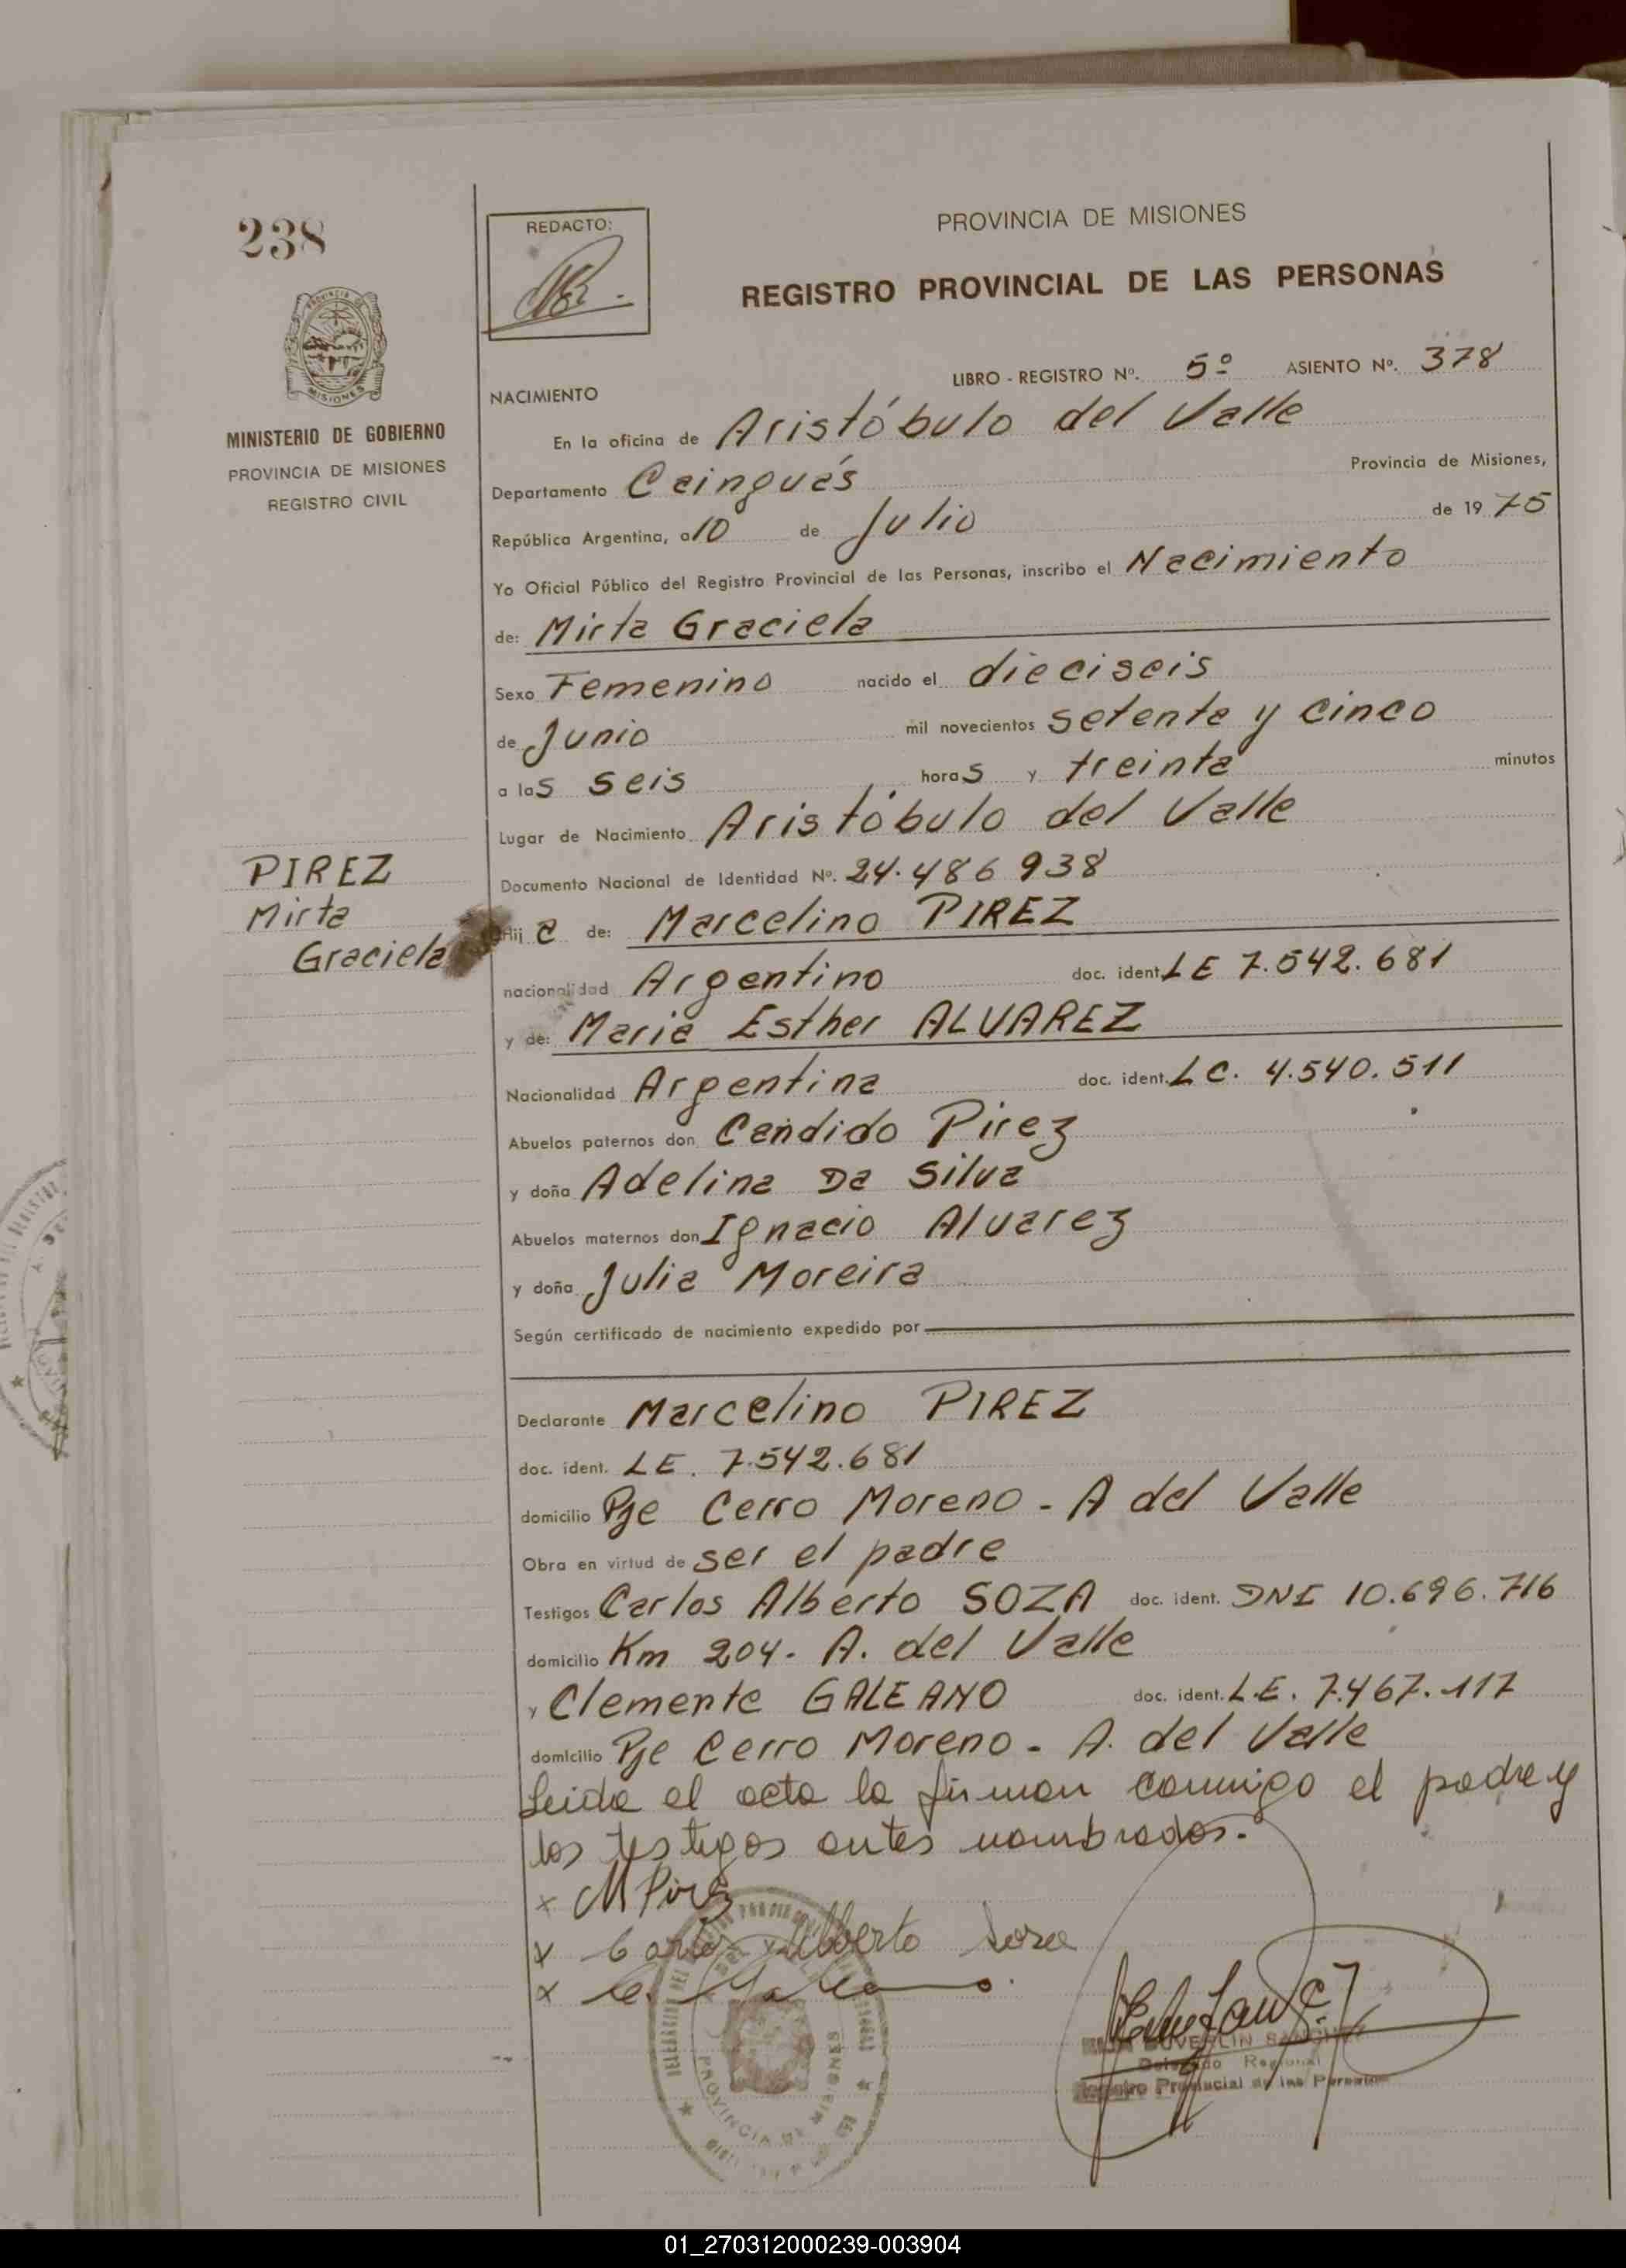 238
MINISTERIO DE GOBIERNO
PROVINCIA DE MISIONES
REGISTRO CIVIL
PIREZ
Mirta
Graciela
REDACTO:
PROVINCIA DE MISIONES
REGISTRO PROVINCIAL DE LAS PERSONAS
LIBRO - REGISTRO Nº. 5º ASIENTO Nº. 378
NACIMIENTO
En la oficina de Aristóbulo del Valle
Departamento Cainguás Provincia de Misiones,
República Argentina, a 10 de Julio de 1975
Yo Oficial Público del Registro Provincial de las Personas, inscribo el Nacimiento
de: Mirta Graciela
Sexo Femenino nacido el dieciseis
de Junio mil novecientos setenta y cinco
a las seis horas y treinta minutos
Lugar de Nacimiento Aristóbulo del Valle
Documento Nacional de Identidad Nº. 24.486938
Hija de: Marcelino PIREZ
nacionalidad Argentino doc. ident. LE 7.542.681
y de: Maria Esther ALVAREZ
Nacionalidad Argentina doc. ident. LC. 4.540.511
Abuelos paternos don Candido Pirez
y doña Adelina Da Silva
Abuelos maternos don Ignacio Alvarez
y doña Julia Moreira
Según certificado de nacimiento expedido por
Declarante Marcelino PIREZ
doc. ident. LE. 7.542.681
domicilio Pje Cerro Moreno - A del Valle
Obra en virtud de ser el padre
Testigos Carlos Alberto SOZA doc. ident. DNI 10.696.716
domicilio Km 204. A. del Valle
y Clemente GALEANO doc. ident. L.E. 7.467.117
domicilio Pje Cerro Moreno - A. del Valle
Leida el acta la firman conmigo el padre y
los testigos antes nombrados.
x M Pirez
x Carlos Alberto Soza
x C. Galeano
PROVINCIA DE MISIONES
Delegado Regional
Registro Provincial de las Personas
01_270312000239-003904